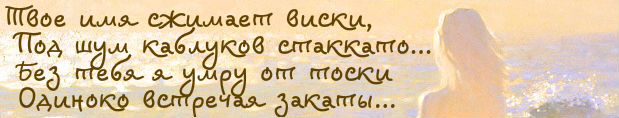 Твое имя сжимает виски,
Под шум каблуков стаккато...
Без тебя я умру от тоски
Одиноко встречая закаты...